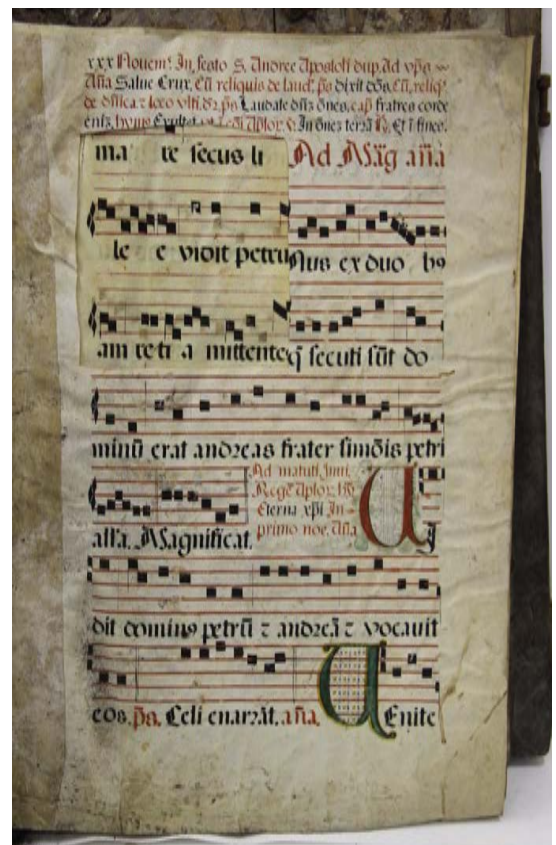 xxx Nouem. In festo S. Andree Apostoli dup. Ad vps
Aña Salue Crux, cũ reliquis de laud. ps dixit dõs. cũ, reliq.
de dñica z loco vlti. dr. ps Laudate dñz õnes, cap fratres corde
eniz, hymn Exultet
ma te secus li Ad Mãg aña
le e vidit petru nus ex duo bo
am re ti a mittente q̃ secuti sũt do
minũ erat andreas frater simõis petri
Ad matuti, Inui,
Regẽ Aplor. hỹ
Eterna xp̃i In
primo noc. Aña
alla. Magnificat.
dit dominus petrũ z andreã z vocauit
eos. ps. Celi enarrãt. aña. VEnite